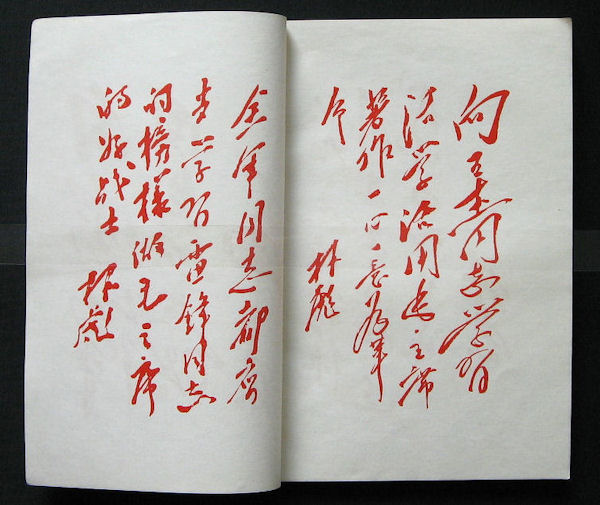 向王杰同志学习
活学活用毛主席
著作一心一意为革
命
林彪
全军同志都应
当学习雷锋同志
的榜樣做毛主席
的好战士
林彪